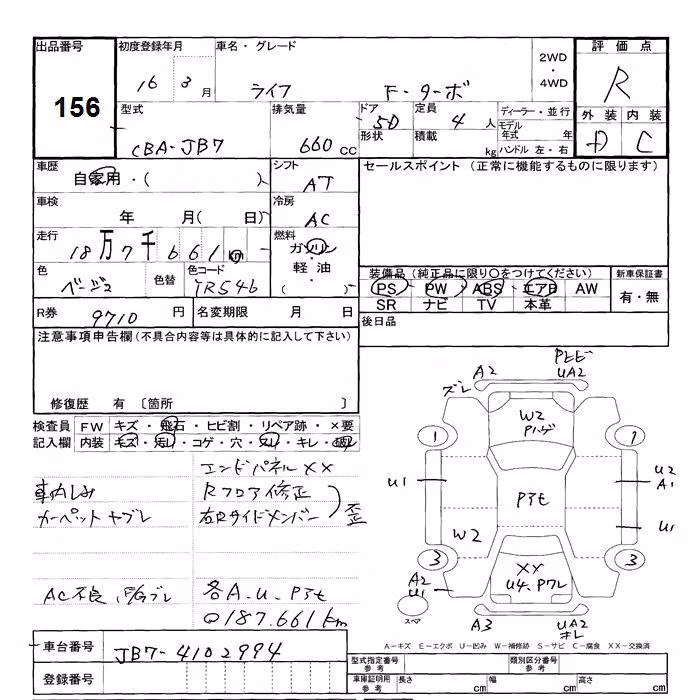 出品番号 初度登録年月 車名・グレード 評価点
156
16 3月 ライフ F・ターボ 2WD・4WD R
型式 排気量 ドア 定員 ディーラー・並行 外装 内装
CBA-JB7 660cc 5D 4人 モデル年式 年 D C
形状 積載 kg ハンドル 左・右
車歴 シフト セールスポイント (正常に機能するものに限ります)
自家用・( ) AT
車検 冷房
年 月( 日) AC
走行 燃料
18万7千661km ガソリン・軽油 ( )
色 色替 色コード
ベージュ YR54b
装備品 (純正品に限り○をつけてください) 新車保証書
PS PW ABS エアB AW 有・無
SR ナビ TV 本革
R券 9710円 名変期限 月 日
後日品
注意事項申告欄 (不具合内容等は具体的に記入して下さい)
修復歴 有 〔箇所 〕
検査員 FW キズ・飛石・ヒビ割・リペア跡・×要
記入欄 内装 キズ・汚レ・コゲ・穴・スレ・キレ・破レ
エンドパネルXX
車内しみ Rフロア修正
カーペットヤブレ 右Rサイドメンバー 歪
AC不良 各A.U.Pアセ
○187.661km
ズレ A2 PヒビUA2
W2 Pハゲ
1 1
U1 Pアセ U2 A1
U1
W2
3 3
XX U4.Pワレ
A2 U1
スペア A3 UA2 キレ
A-キズ E-エクボ U-凹み W-補修跡 S-サビ C-腐食 XX-交換済
車台番号 JB7-4102994
登録番号
型式指定番号 参考 類別区分番号 参考
車庫証明用 参考 長さ cm 幅 cm 高さ cm